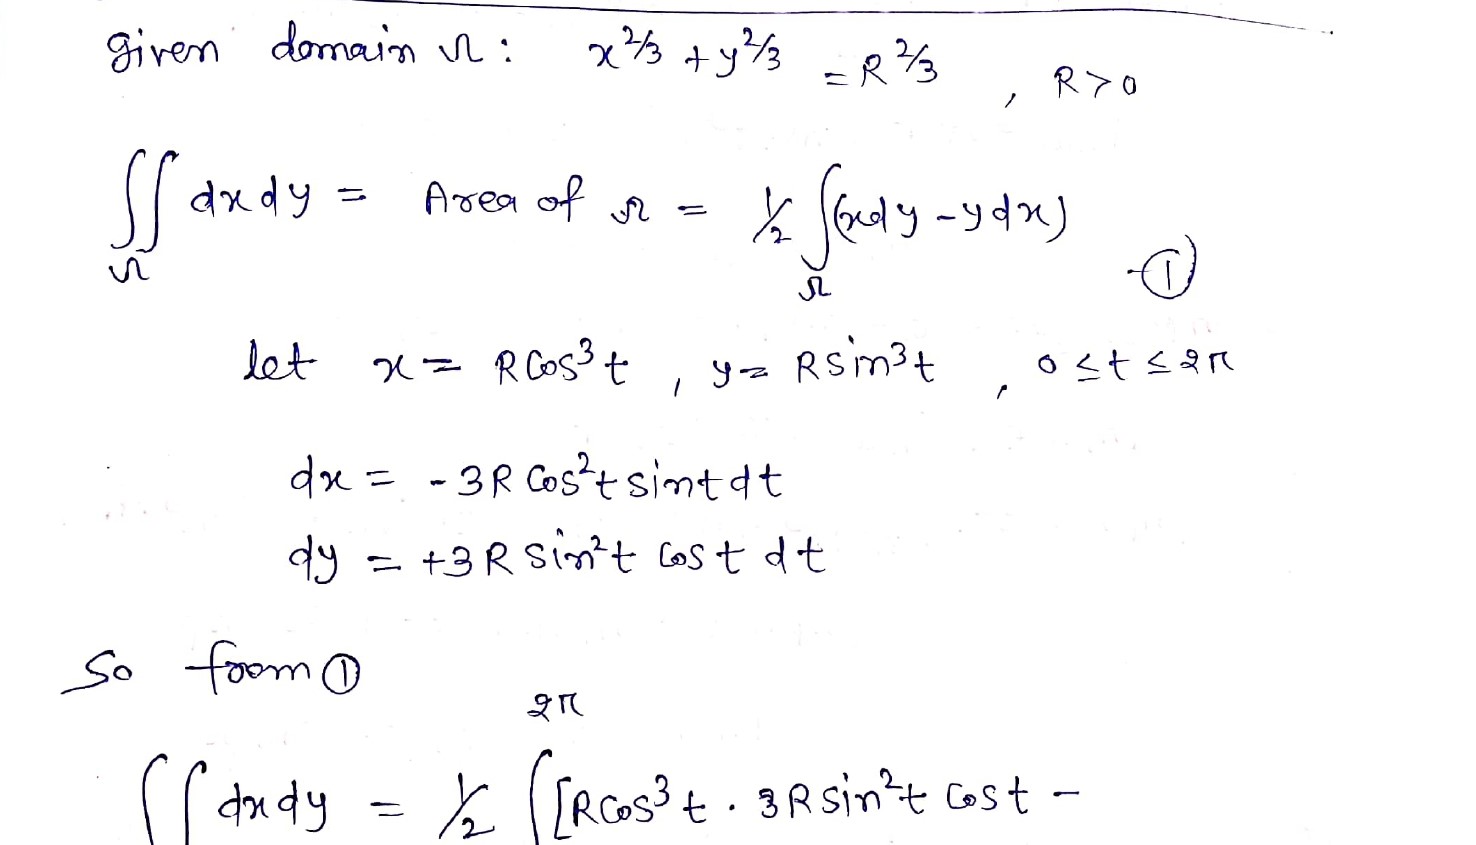 given domain Ω : x^{2/3} + y^{2/3} = R^{2/3} , R > 0
∬_Ω dx dy = Area of Ω = 1/2 ∫_Ω (xdy - ydx) -①
let x = R Cos³t , y = R sin³t , 0 ≤ t ≤ 2π
dx = -3R Cos²t sint dt
dy = +3R sin²t cos t dt
So from ①
∬ dx dy = 1/2 ∫^{2π} [R Cos³t · 3R sin²t Cos t -